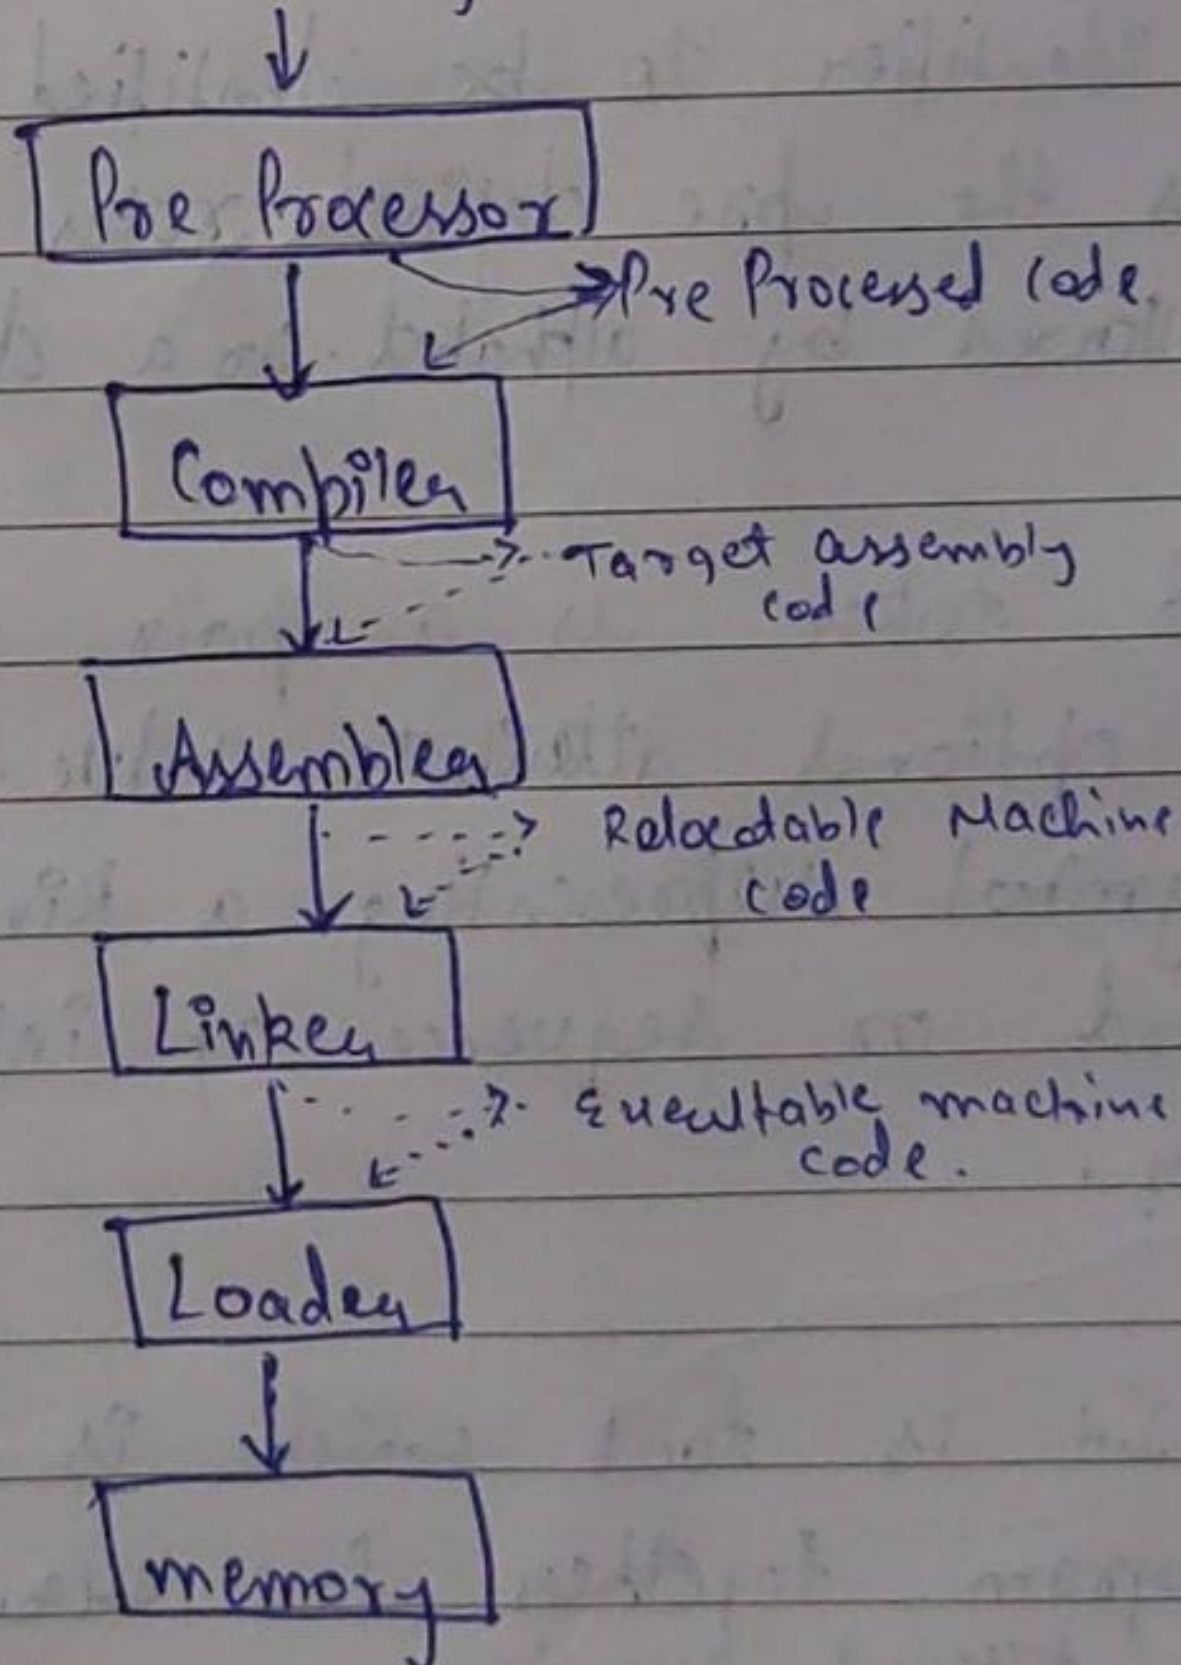 Pre Processor
Pre Processed code.
Compiler
Target assembly
code
Assembler
Relocatable Machine
code
Linker
Executable machine
code.
Loader
memory